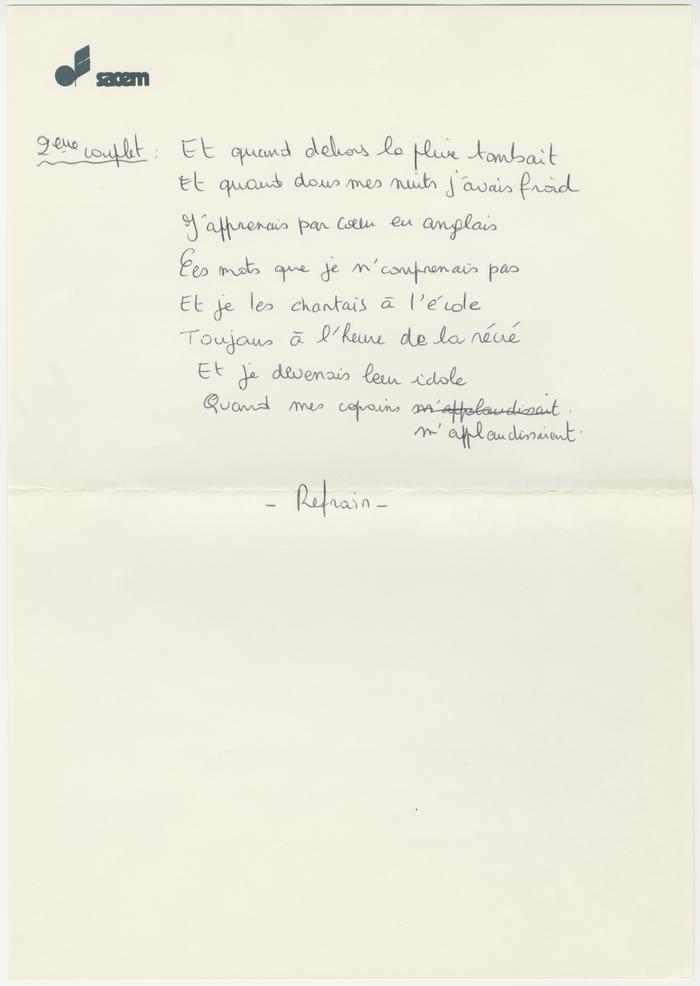 sacem
2ème couplet : Et quand dehors la pluie tombait
Et quand dans mes nuits j'avais froid
J'apprenais par cœur en anglais
Ces mots que je n'comprenais pas
Et je les chantais à l'école
Toujours à l'heure de la récré
Et je devenais leur idole
Quand mes copains m'applaudissait.
m'applaudissaient.
- Refrain -